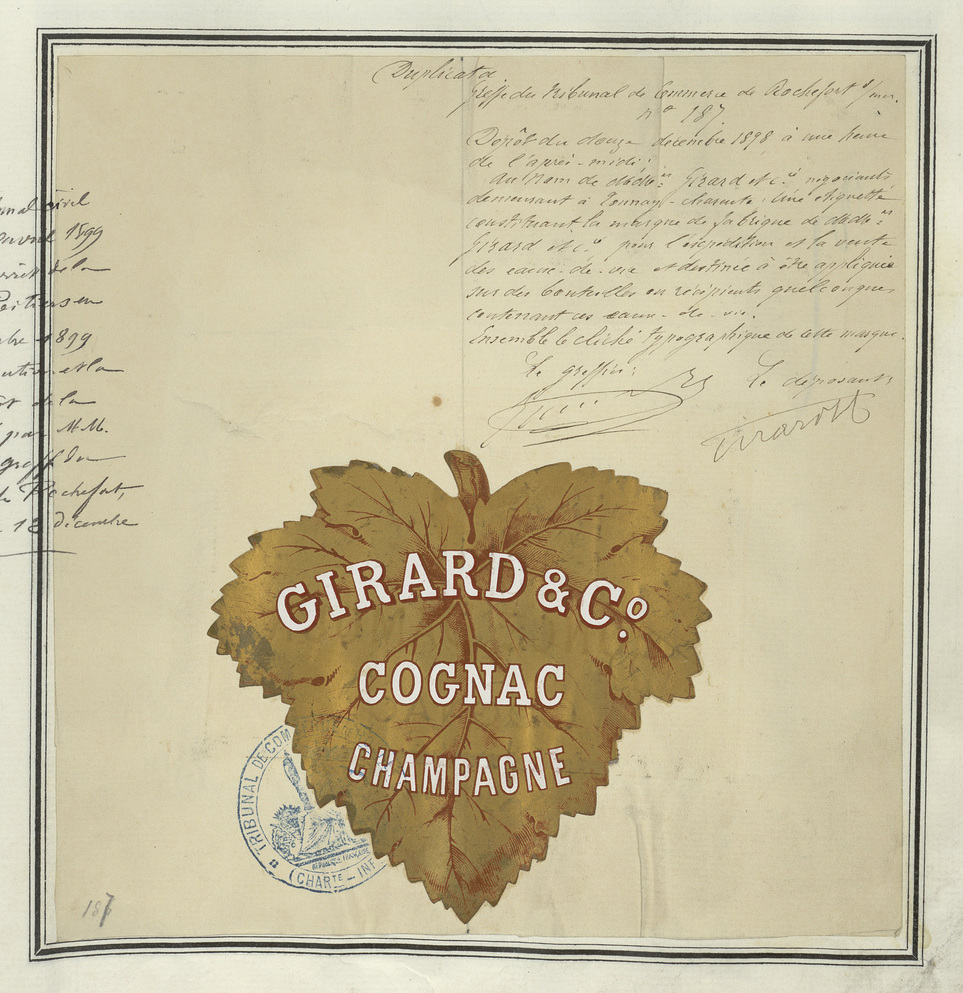 Duplicata
Greffe du Tribunal de Commerce de Rochefort s/mer.
n° 187
Dépôt du douze décembre 1898 à une heure
de l'après-midi :
au nom de Girard et Cie négociants
demeurant à Tonnay-Charente : Une étiquette
constituant la marque de fabrique de
Girard et Cie pour l'expédition et la vente
des eaux-de-vie et destinée à être appliquée
sur des bouteilles ou récipients quelconques
contenant ces eaux-de-vie.
Ensemble le cliché typographique de cette marque.
Le greffier : Le déposant,
Girard
civil
avril 1899
de la
Poitiers en
1899
et la
de la
par MM.
greffe du
de Rochefort,
12 décembre
GIRARD & Cº
COGNAC
CHAMPAGNE
TRIBUNAL DE COM
REPUBLIQUE FRANÇAISE
(CHARTE - INF
187